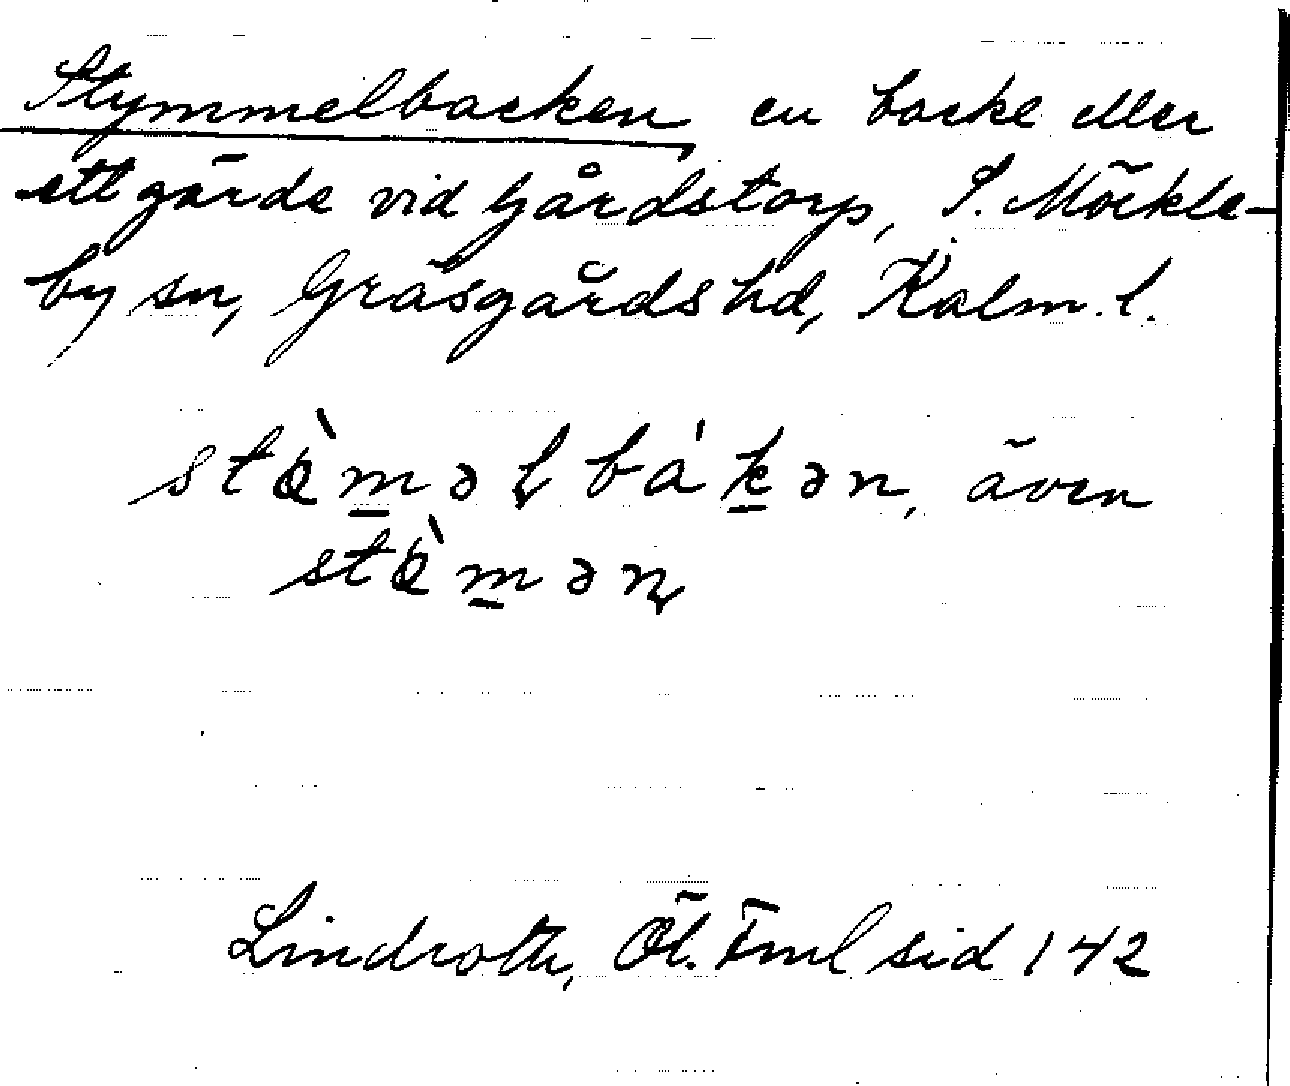 Stymmelbacken en backe eller
ett gärde vid Gårdstorp, S. Möckle-
by sn, Gräsgårds hd, Kalm. l.
även
Lindroth, Öl. Fml sid 142